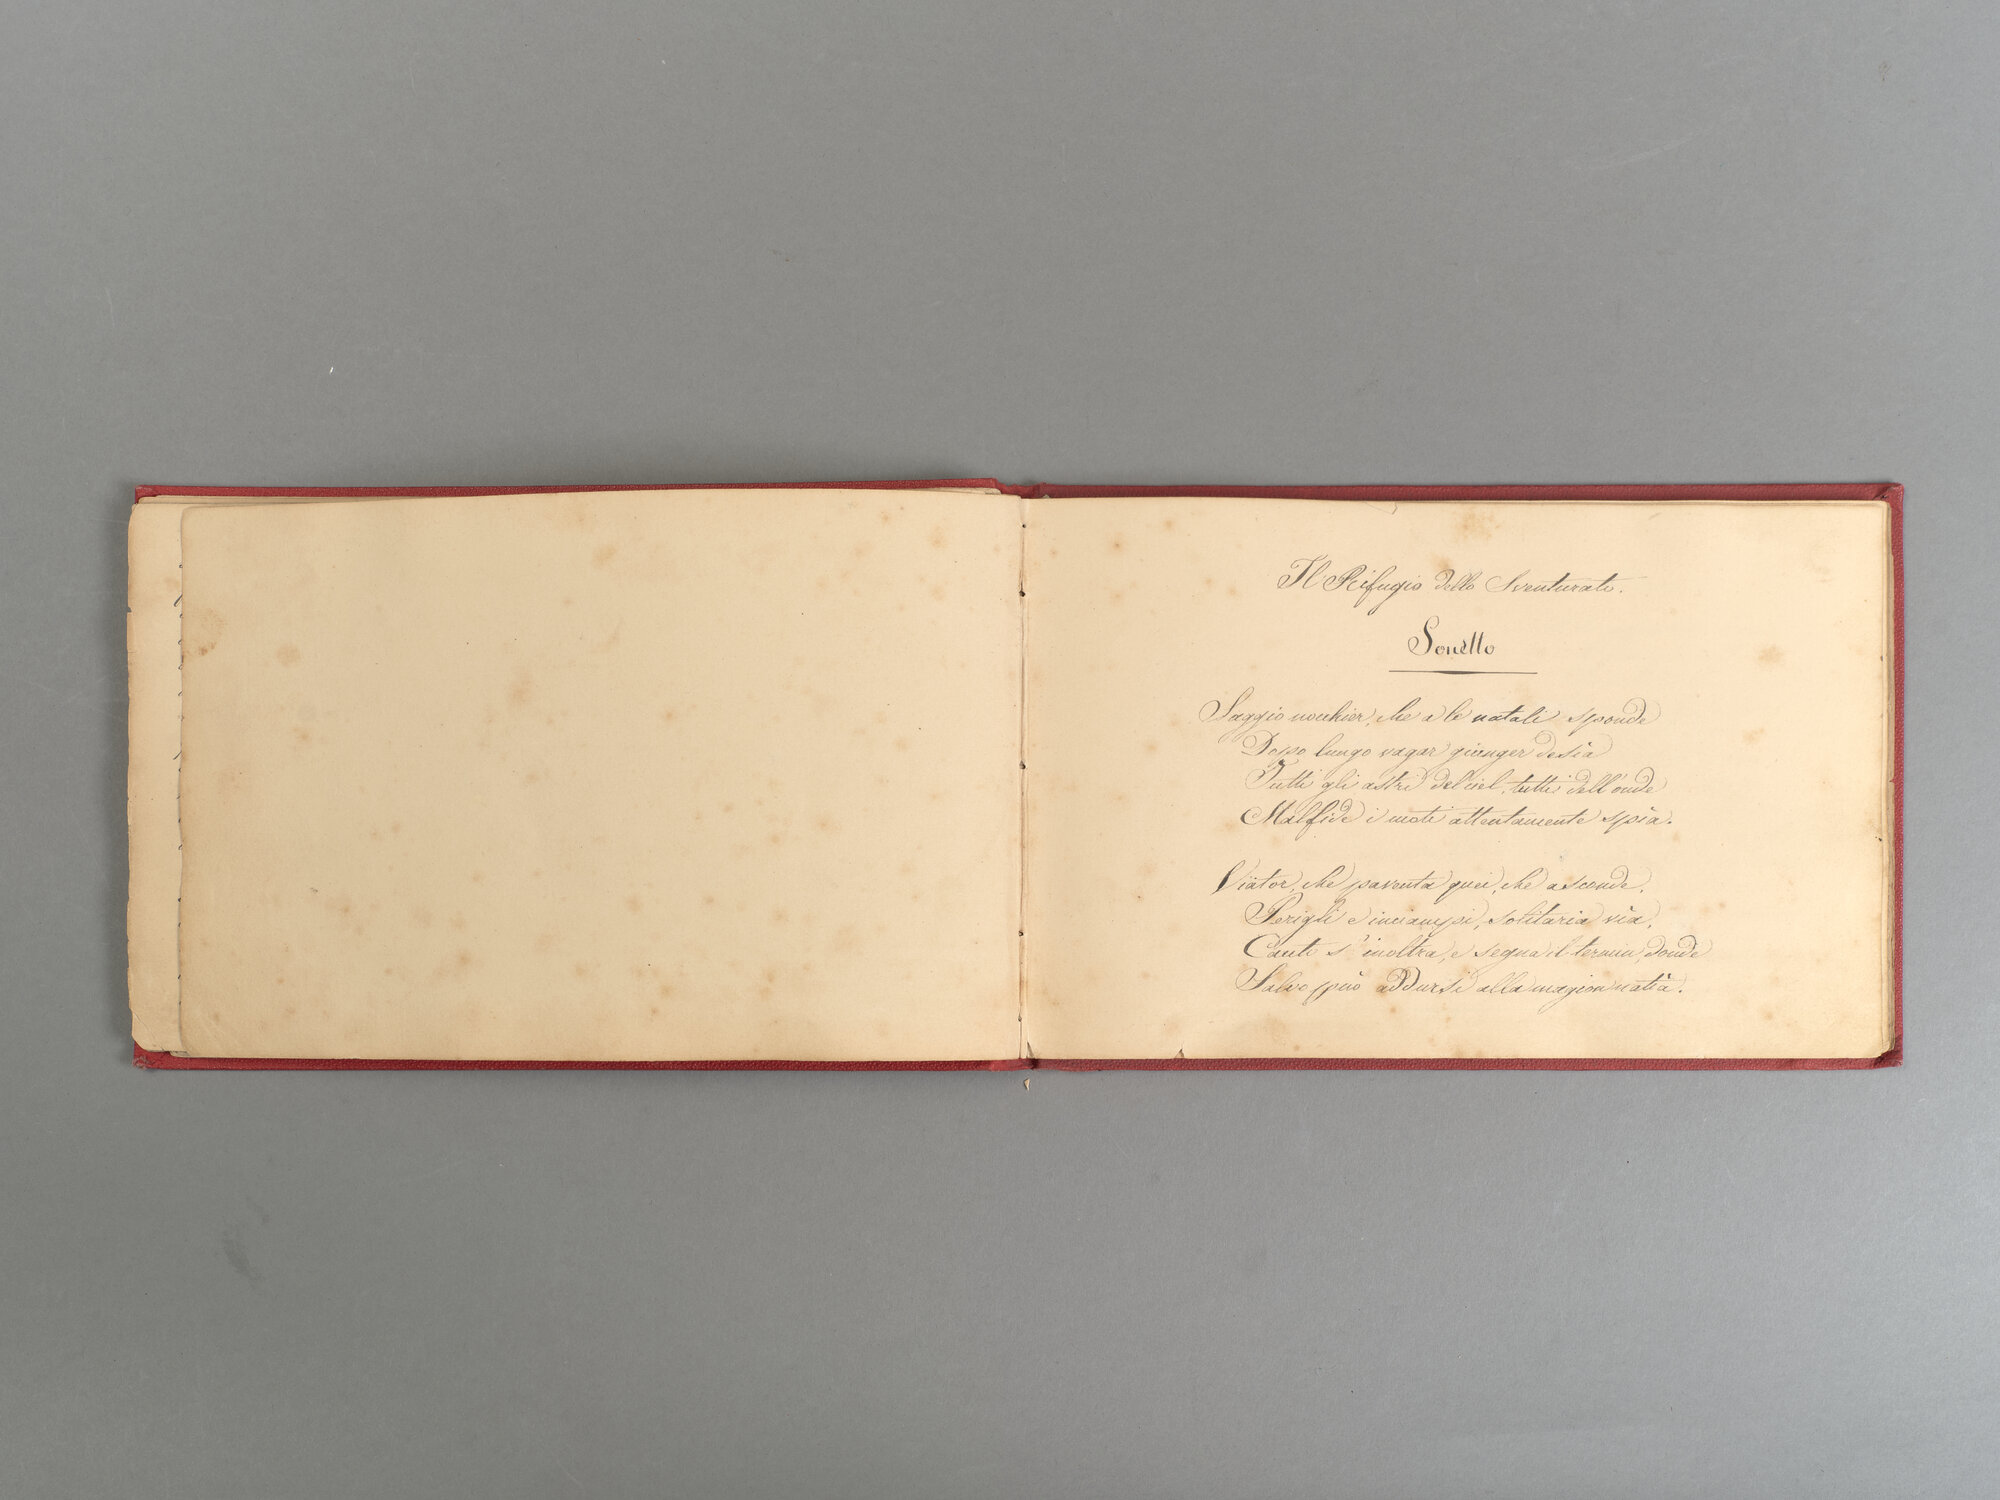 Il Rifugio dello Sventurato.
Sonetto
Saggio nocchier, che a le natali sponde
Dopo lungo vagar giunger desìa
Tutti gli astri del ciel, tutti dell'onde
Malfide i moti attentamente spìa.
Viator, che paventa quei, che asconde,
Perigli e inciampi, solitaria vìa,
Cauto s'inoltra, e segna il termin, donde
Salvo può addursi alla magion natìa.